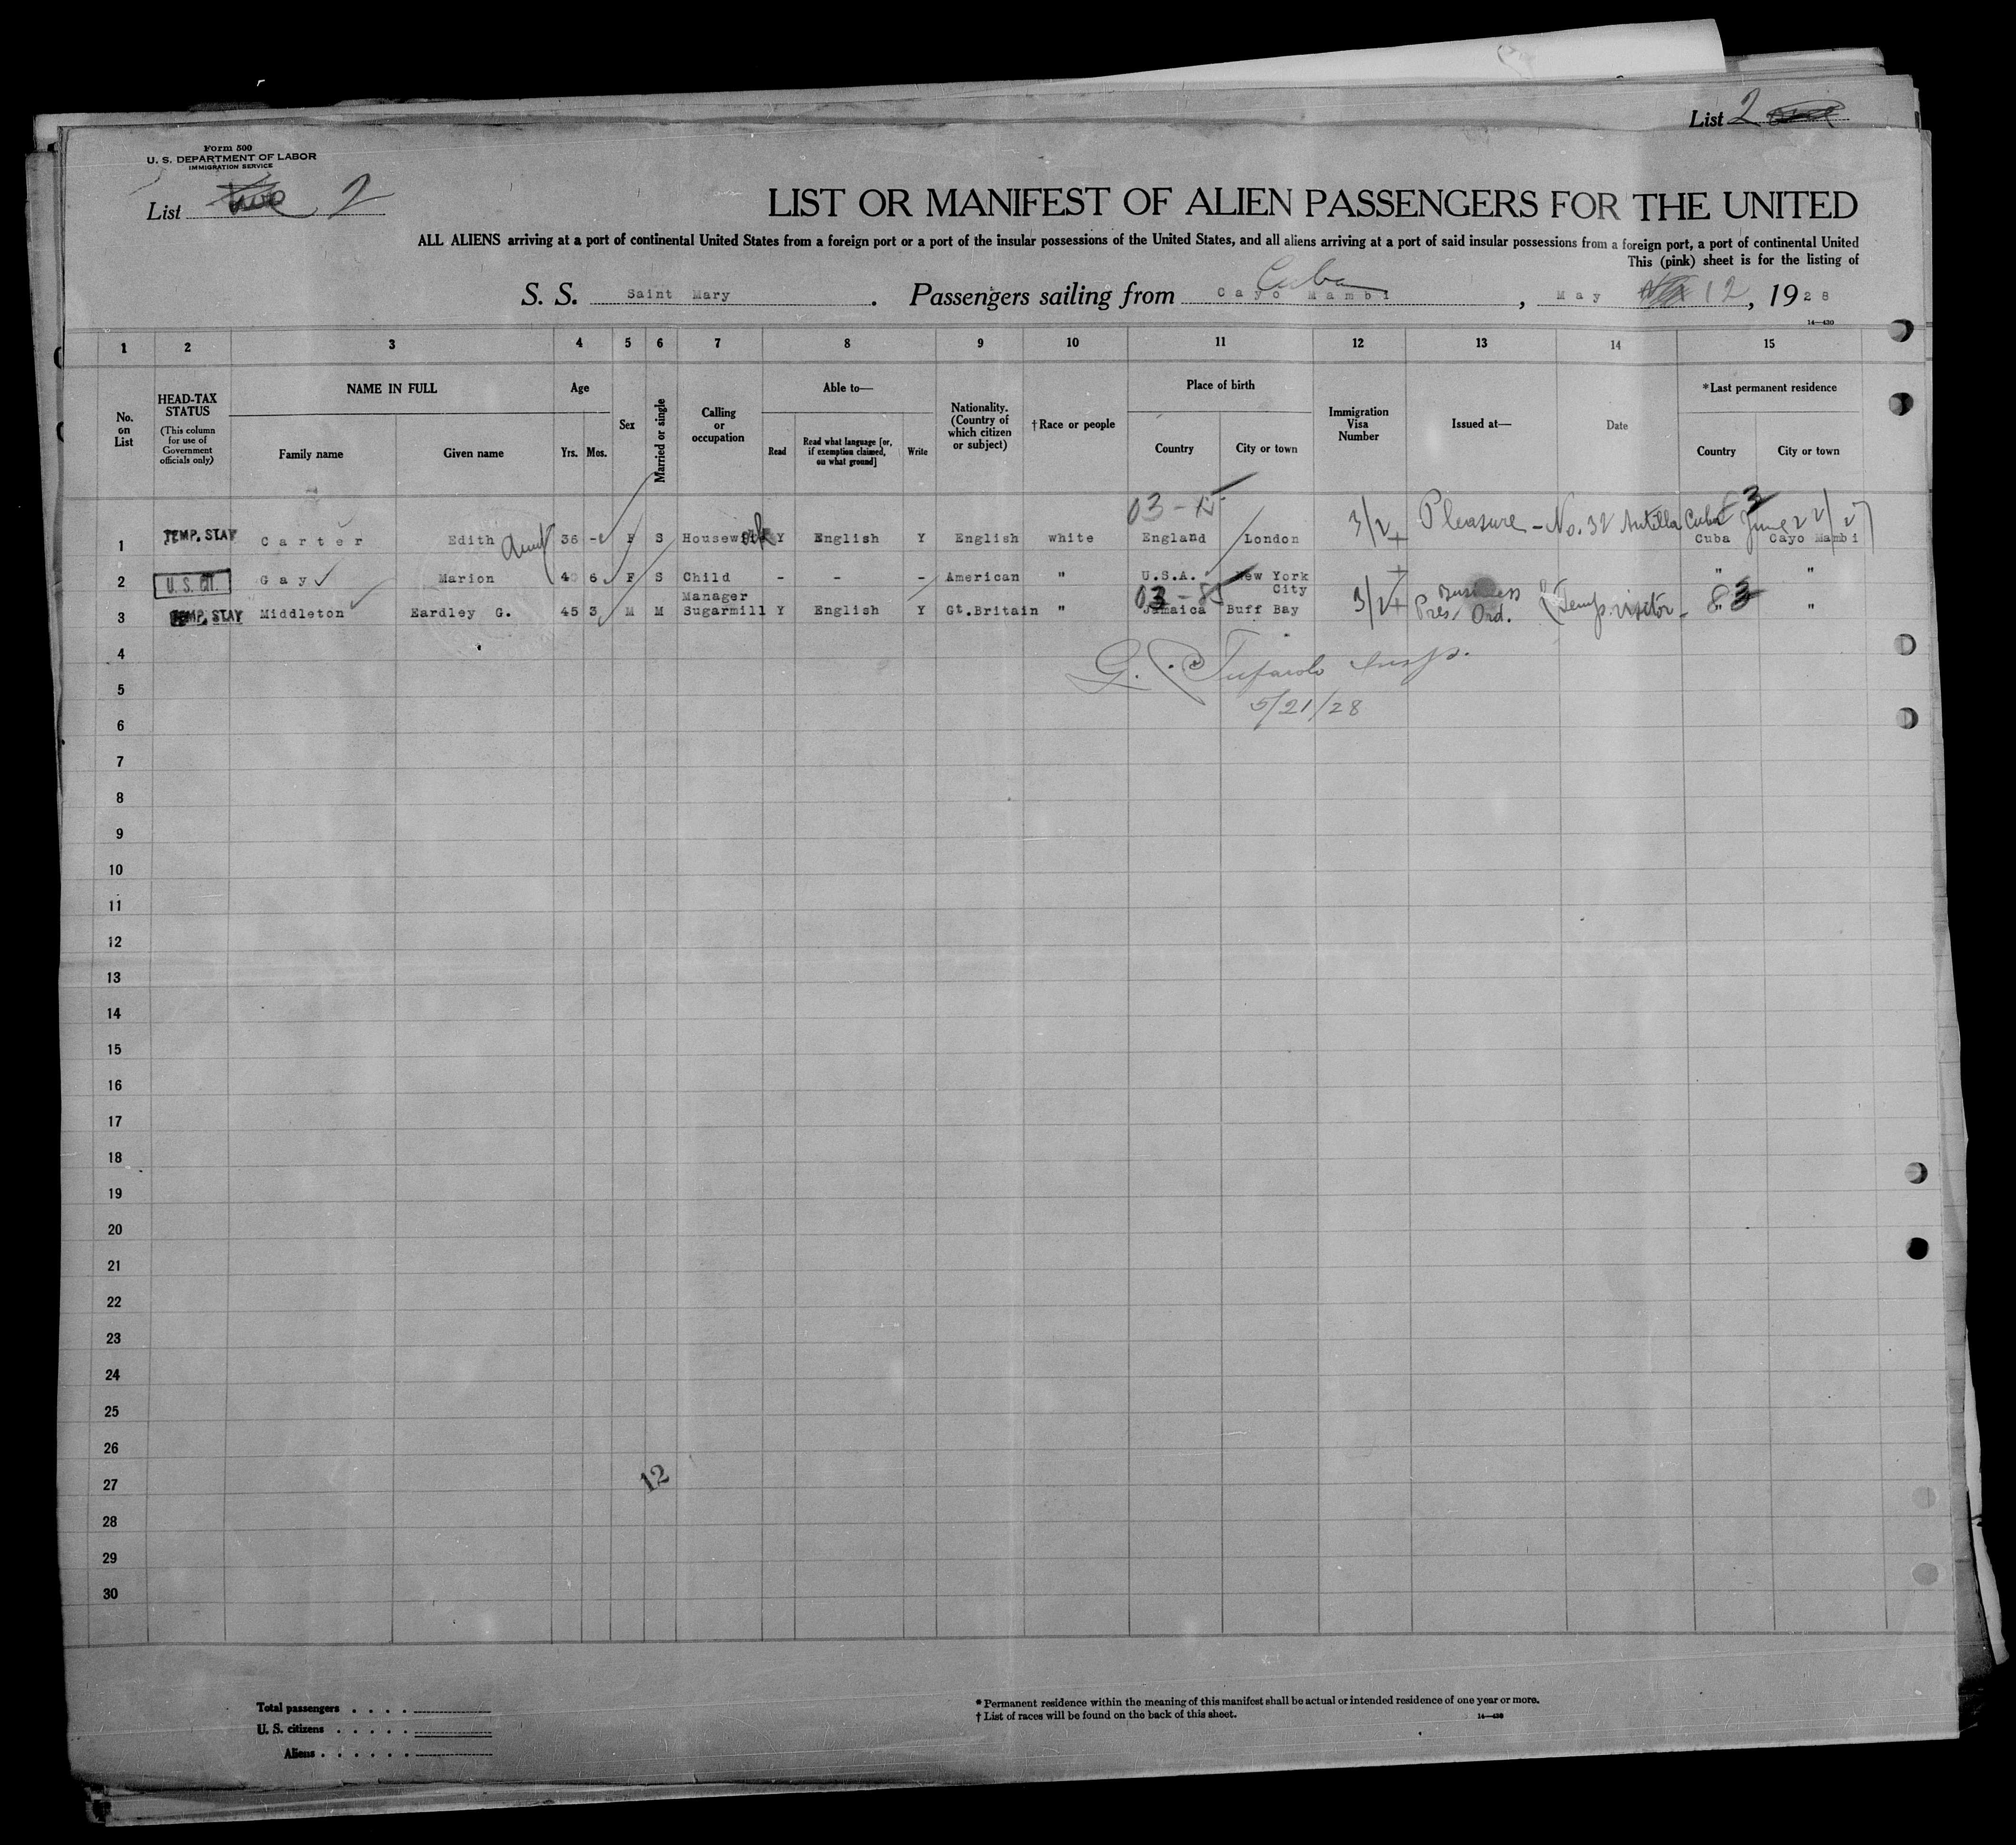 List 2
Form 500
U. S. DEPARTMENT OF LABOR
IMMIGRATION SERVICE
List two 2
LIST OR MANIFEST OF ALIEN PASSENGERS FOR THE UNITED
ALL ALIENS arriving at a port of continental United States from a foreign port or a port of the insular possessions of the United States, and all aliens arriving at a port of said insular possessions from a foreign port, a port of continental United
This (pink) sheet is for the listing of
Cuba
S. S. Saint Mary . Passengers sailing from Cayo Mambi , May 12 , 19 28
14—430
1 2 3 4 5 6 7 8 9 10 11 12 13 14 15
No. on List
HEAD-TAX STATUS
(This column for use of Government officials only)
NAME IN FULL
Family name
Given name
Age
Yrs.
Mos.
Sex
Married or single
Calling or occupation
Able to—
Read
Read what language [or, if exemption claimed, on what ground]
Write
Nationality. (Country of which citizen or subject)
†Race or people
Place of birth
Country
City or town
Immigration Visa Number
Issued at—
Date
*Last permanent residence
Country
City or town
03 -
1 TEMP. STAY Carter Edith Aunt 36 - F S Housewife Y English Y English white England London 3/2 Pleasure - No. 32 Antilla Cuba June 22/27 Cuba Cayo Mambi
2 U. S. CIT. Gay Marion 4 6 F S Child - - - American " U.S.A. New York City " "
03 - 8
3 TEMP. STAY Middleton Eardley G. 45 3 M M Manager Sugarmill Y English Y Gt.Britain " Jamaica Buff Bay 3/2 Business Pres. Ord. Temp. visitor - 83 " "
4
G. Insp.
5
5/21/28
6
7
8
9
10
11
12
13
14
15
16
17
18
19
20
21
22
23
24
25
26
27
12
28
29
30
Total passengers . . . .
U. S. citizens . . . . .
Aliens . . . . . .
* Permanent residence within the meaning of this manifest shall be actual or intended residence of one year or more.
† List of races will be found on the back of this sheet.
14—430